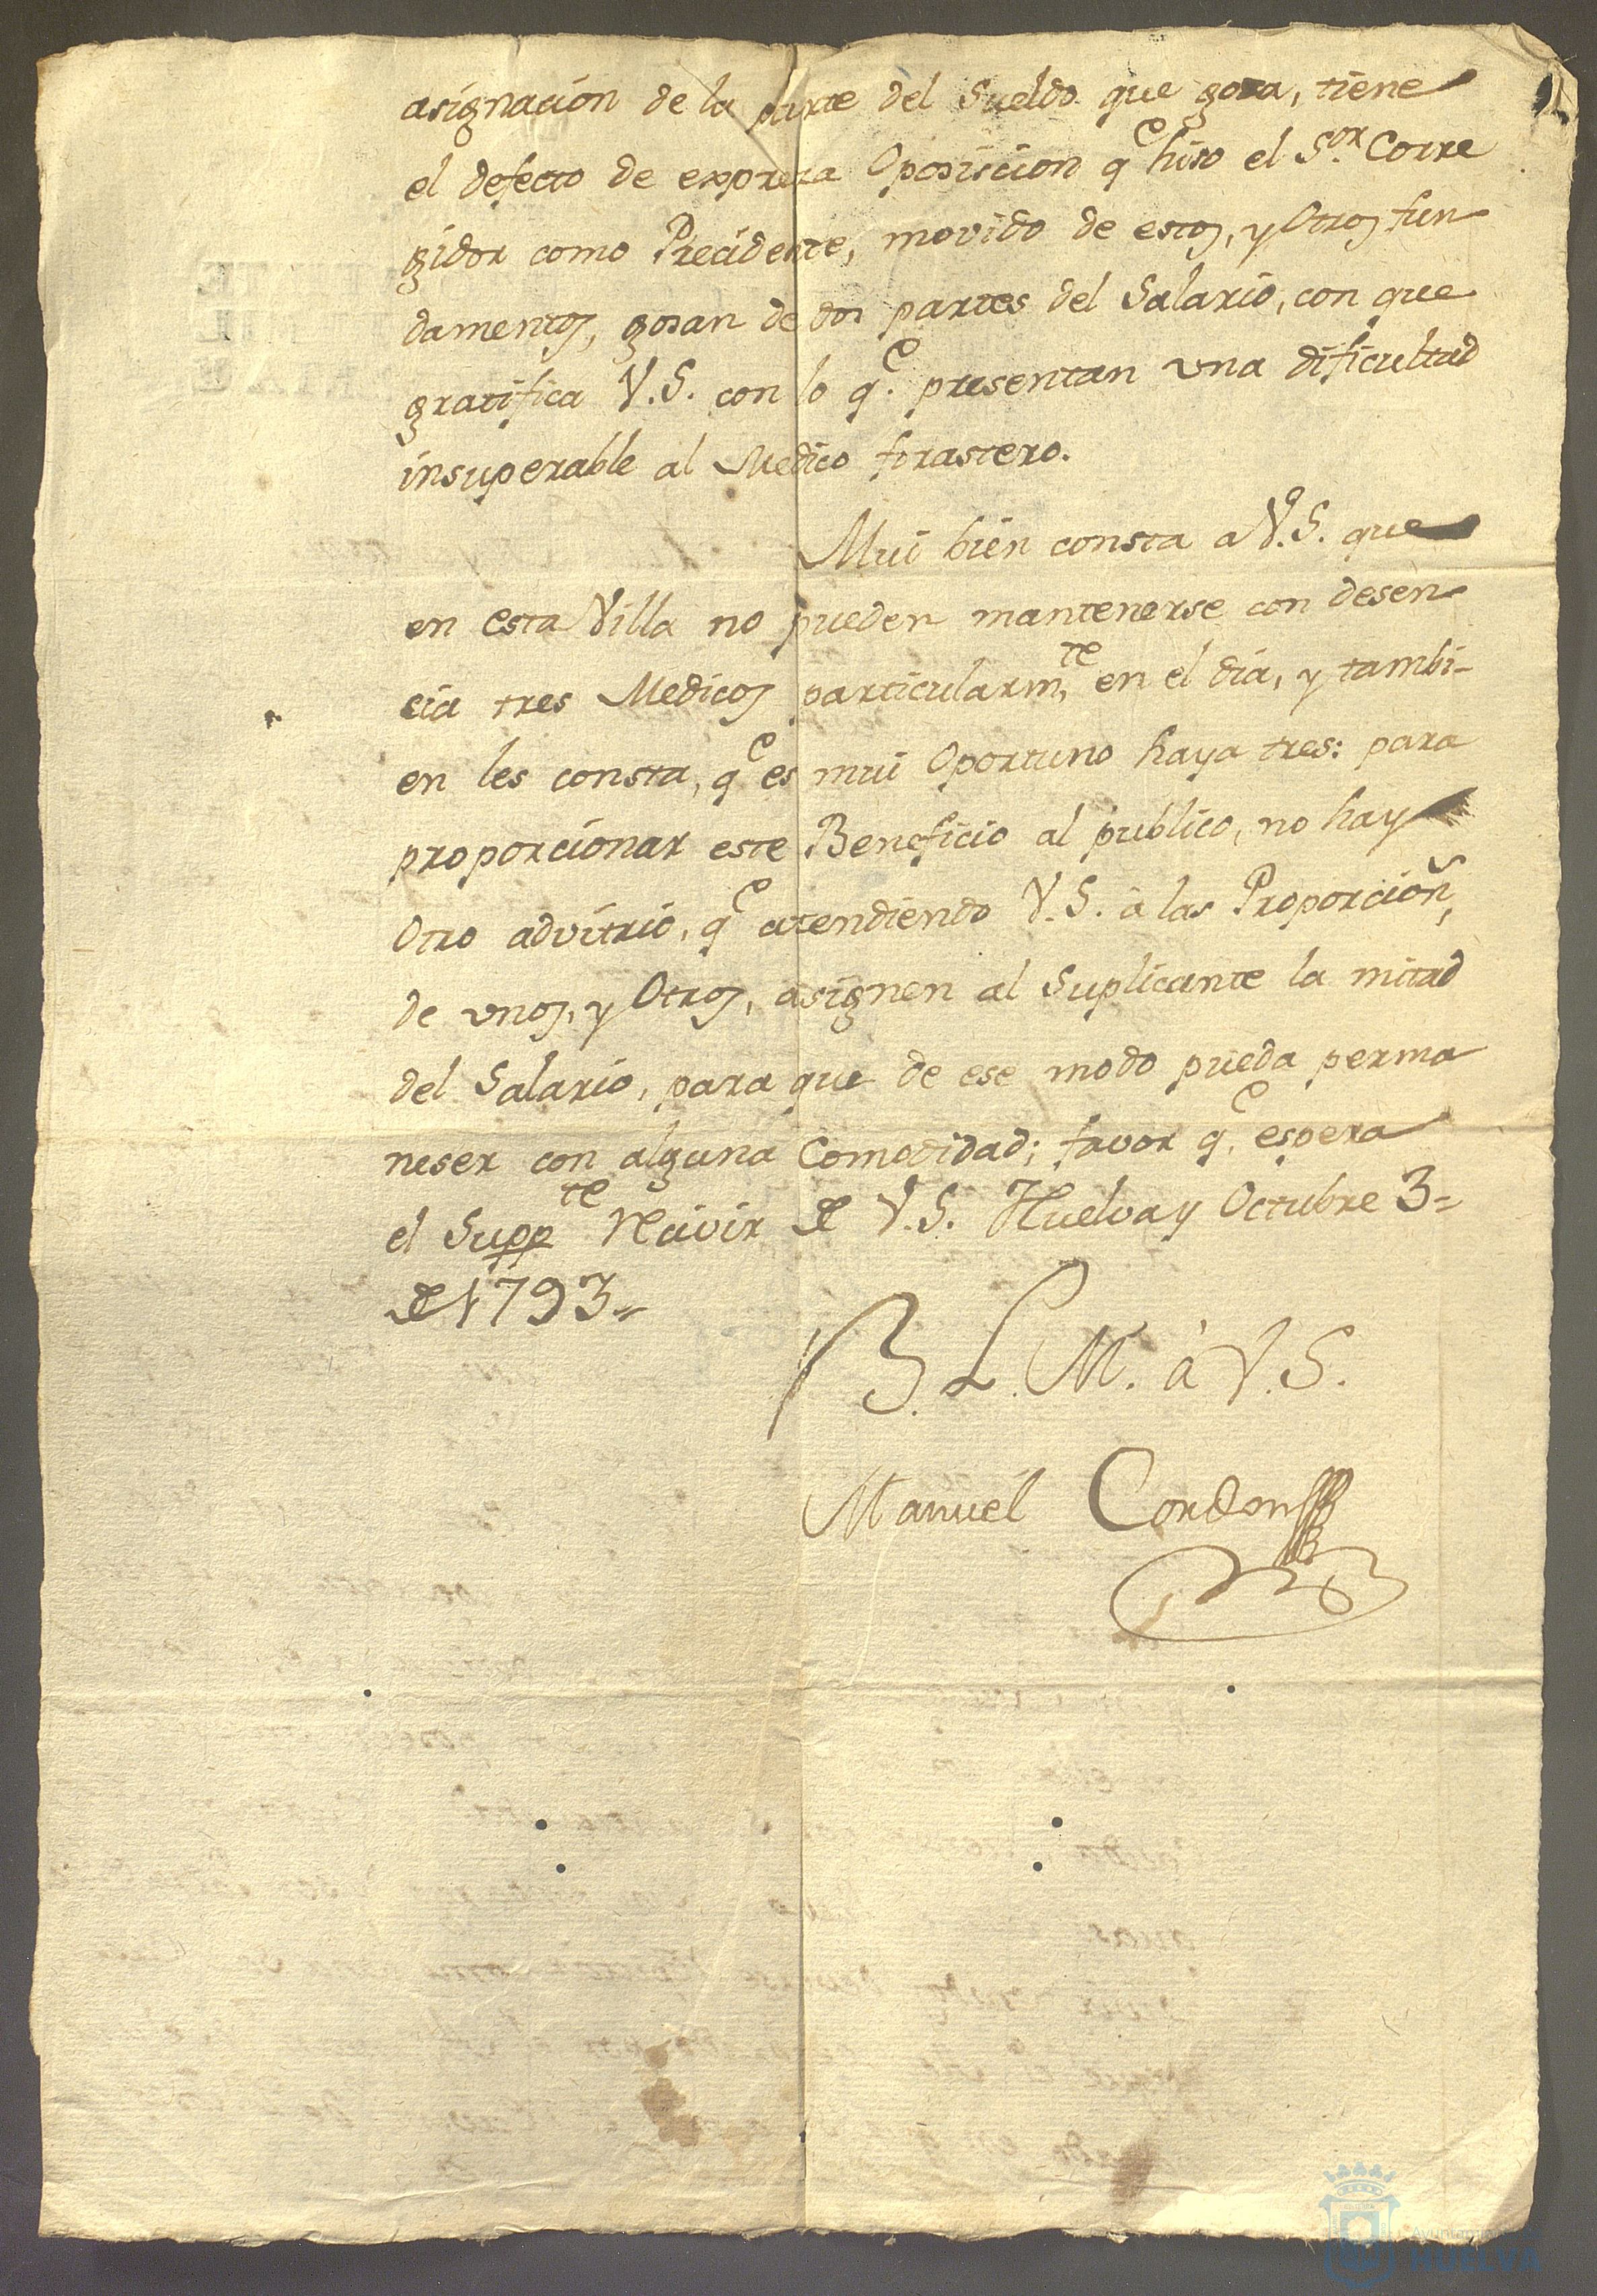 asignacion de la parte del Sueldo que gosa, tiene
el defecto de expresa Oposiscion qe hiso el Sor. Corre
gidor como Precidente, movido de estos, y Otros fun
damentos, gosan de dos partes del Salario, con que
gratifica V.S. con lo qe. presentan una dificultad
insuperable al Medico forastero.
Mui bien consta a V.S. que
en esta Villa no pueden mantenerse con desen
cia tres Medicos particularmte, en el dia, y tambi-
en les consta, qe es mui Oportuno haya tres: para
proporcionar este Beneficio al publico, no hay
Otro advitrio, qe atendiendo V.S. à las Proporcioñ,
de unos, y Otros, asignen al Suplicante la mitad
del Salario, para que de ese modo pueda perma
neser con alguna Comodidad; favor qe. espera
el Suppte Recivir de V.S. Huelva y Octubre 3=
de 1793=
B. L. M. à V.S.
Manuel Cordon
Ayuntamiento de
HUELVA